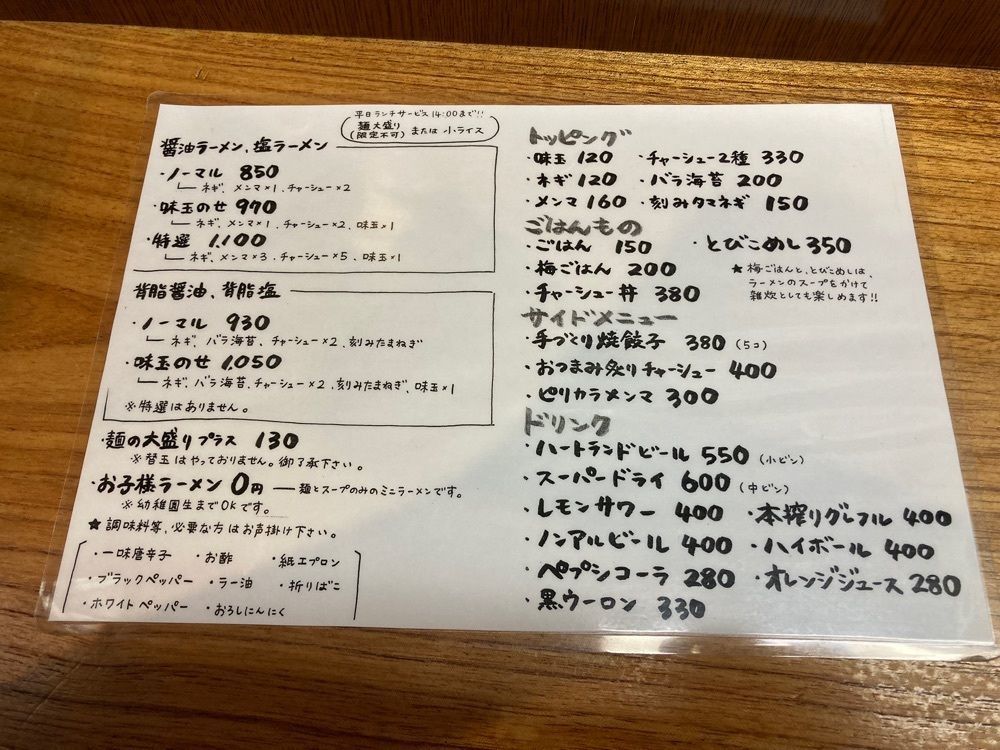 平日ランチサービス14:00まで!!
麺大盛り(限定不可)または小ライス
醤油ラーメン、塩ラーメン
・ノーマル 850
ネギ、メンマ×1、チャーシュー×2
・味玉のせ 970
ネギ、メンマ×1、チャーシュー×2、味玉×1
・特選 1,100
ネギ、メンマ×3、チャーシュー×5、味玉×1
背脂醤油、背脂塩
・ノーマル 930
ネギ、バラ海苔、チャーシュー×2、刻みたまねぎ
・味玉のせ 1,050
ネギ、バラ海苔、チャーシュー×2、刻みたまねぎ、味玉×1
※特選はありません。
・麺の大盛りプラス 130
※替玉はやっておりません。御了承下さい。
・お子様ラーメン 0円 麺とスープのみのミニラーメンです。
※幼稚園生までOKです。
★調味料等、必要な方はお声掛け下さい。
・一味唐辛子 ・お酢 ・紙エプロン
・ブラックペッパー ・ラー油 ・折りばこ
・ホワイトペッパー ・おろしにんにく
トッピング
・味玉 120 ・チャーシュー2種 330
・ネギ 120 ・バラ海苔 200
・メンマ 160 ・刻みタマネギ 150
ごはんもの
・ごはん 150 ・とびこめし 350
・梅ごはん 200
★梅ごはんと、とびこめしは、
ラーメンのスープをかけて
雑炊としても楽しめます!!
・チャーシュー丼 380
サイドメニュー
・手づくり焼餃子 380 (5コ)
・おつまみ炙りチャーシュー 400
・ピリカラメンマ 300
ドリンク
・ハートランドビール 550 (小ビン)
・スーパードライ 600 (中ビン)
・レモンサワー 400 ・本搾りグレフル 400
・ノンアルビール 400 ・ハイボール 400
・ペプシコーラ 280 ・オレンジジュース 280
・黒ウーロン 330